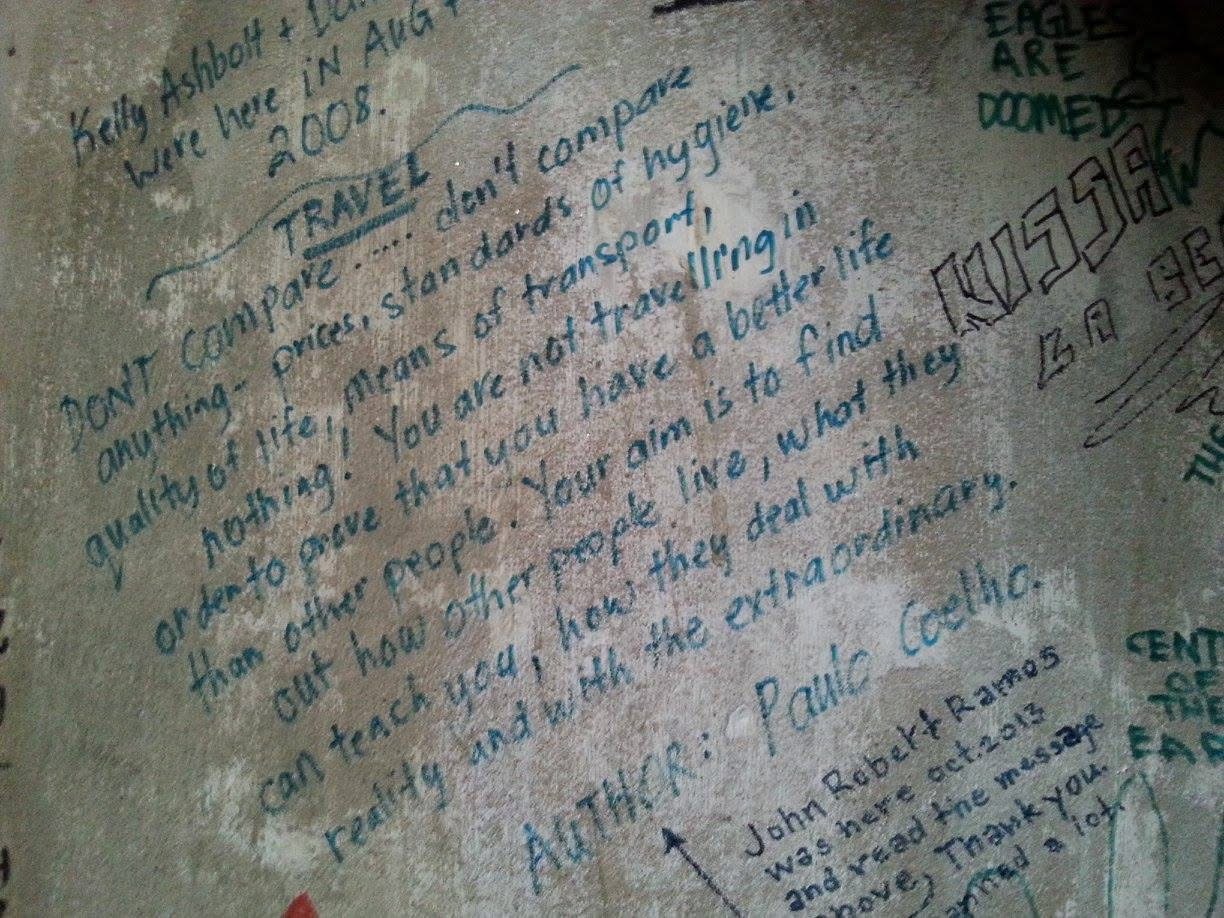 Kelly Ashbolt +
were here in AUG
2008.
TRAVEL
DON'T compare ..... don't compare
anything- prices, standards of hygiene,
quality of life, means of transport,
nothing! You are not travelling in
order to prove that you have a better life
than other people. Your aim is to find
out how other people live, what they
can teach you, how they deal with
reality and with the extraordinary.
AUTHOR: Paulo Coelho.
John Robert Ramos
was here oct.2013
and read the message
above, Thank you.
a lot.
EAGLES
ARE
DOOMED
KISSA
OF
THE